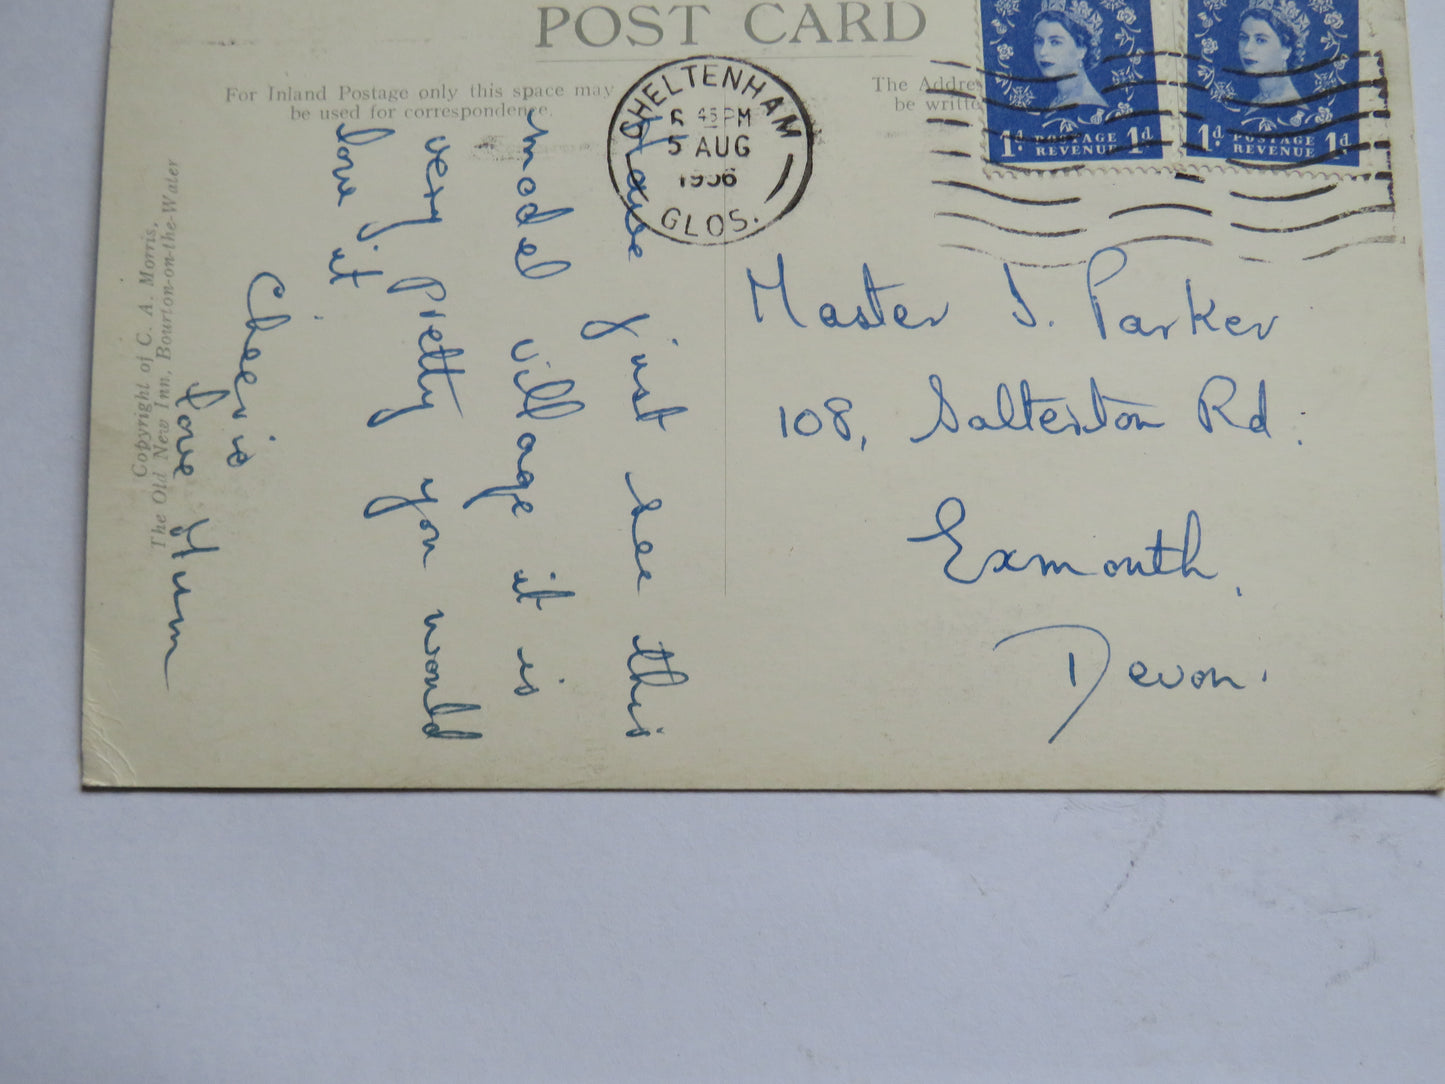 POST CARD
For Inland Postage only this space may
be used for correspondence.
The Addre
be writte
CHELTENHAM
6 45 PM
5 AUG
1956
GLOS.
1d. POSTAGE REVENUE 1d
1d. POSTAGE REVENUE 1d
Have just see this
model village it is
very pretty you would
love it
Cheerio
love Mum
Master J. Parker
108, Salterton Rd.
Exmouth.
Devon.
Copyright of C. A. Morris,
The Old New Inn, Bourton-on-the-Water